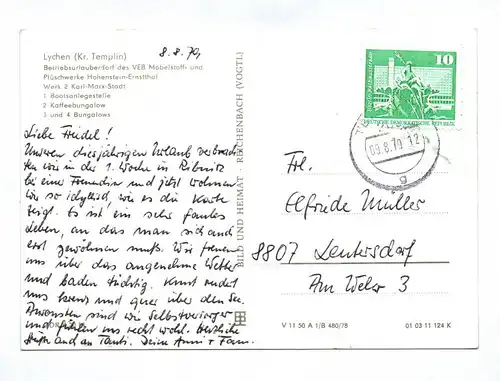 Lychen (Kr. Templin)
8.8.79
Betriebsurlauberdorf des VEB Möbelstoff- und
Plüschwerke Hohenstein-Ernstthal
Werk 2 Karl-Marx-Stadt
1 Bootsanlegestelle
2 Kaffeebungalow
3 und 4 Bungalows
Liebe Friedel!
Unseren diesjährigen Urlaub verbrach-
ten wir in der 1. Woche in Ribnitz
bei einer Freundin und jetzt wohnen
wir so idyllisch, wie es die Karte
zeigt. Es ist ein sehr faules
Leben, an das man sich auch
erst gewöhnen muß. Wir freuen
uns über das angenehme Wetter
und baden tüchtig. Knut rudert
uns kreuz und quer über den See.
Ansonsten sind wir Selbstversorger
und fühlen uns recht wohl. Herzliche
Grüße auch an Tanti. Deine Anni + Fam.
BILD UND HEIMAT REICHENBACH (VOGTL)
10
DEUTSCHE DEMOKRATISCHE REPUBLIK
09.8.79-12
g
Frl.
Elfriede Müller
8807 Leutersdorf
Am Wehr 3
V 11 50 A 1/B 480/78
01 03 11 124 K